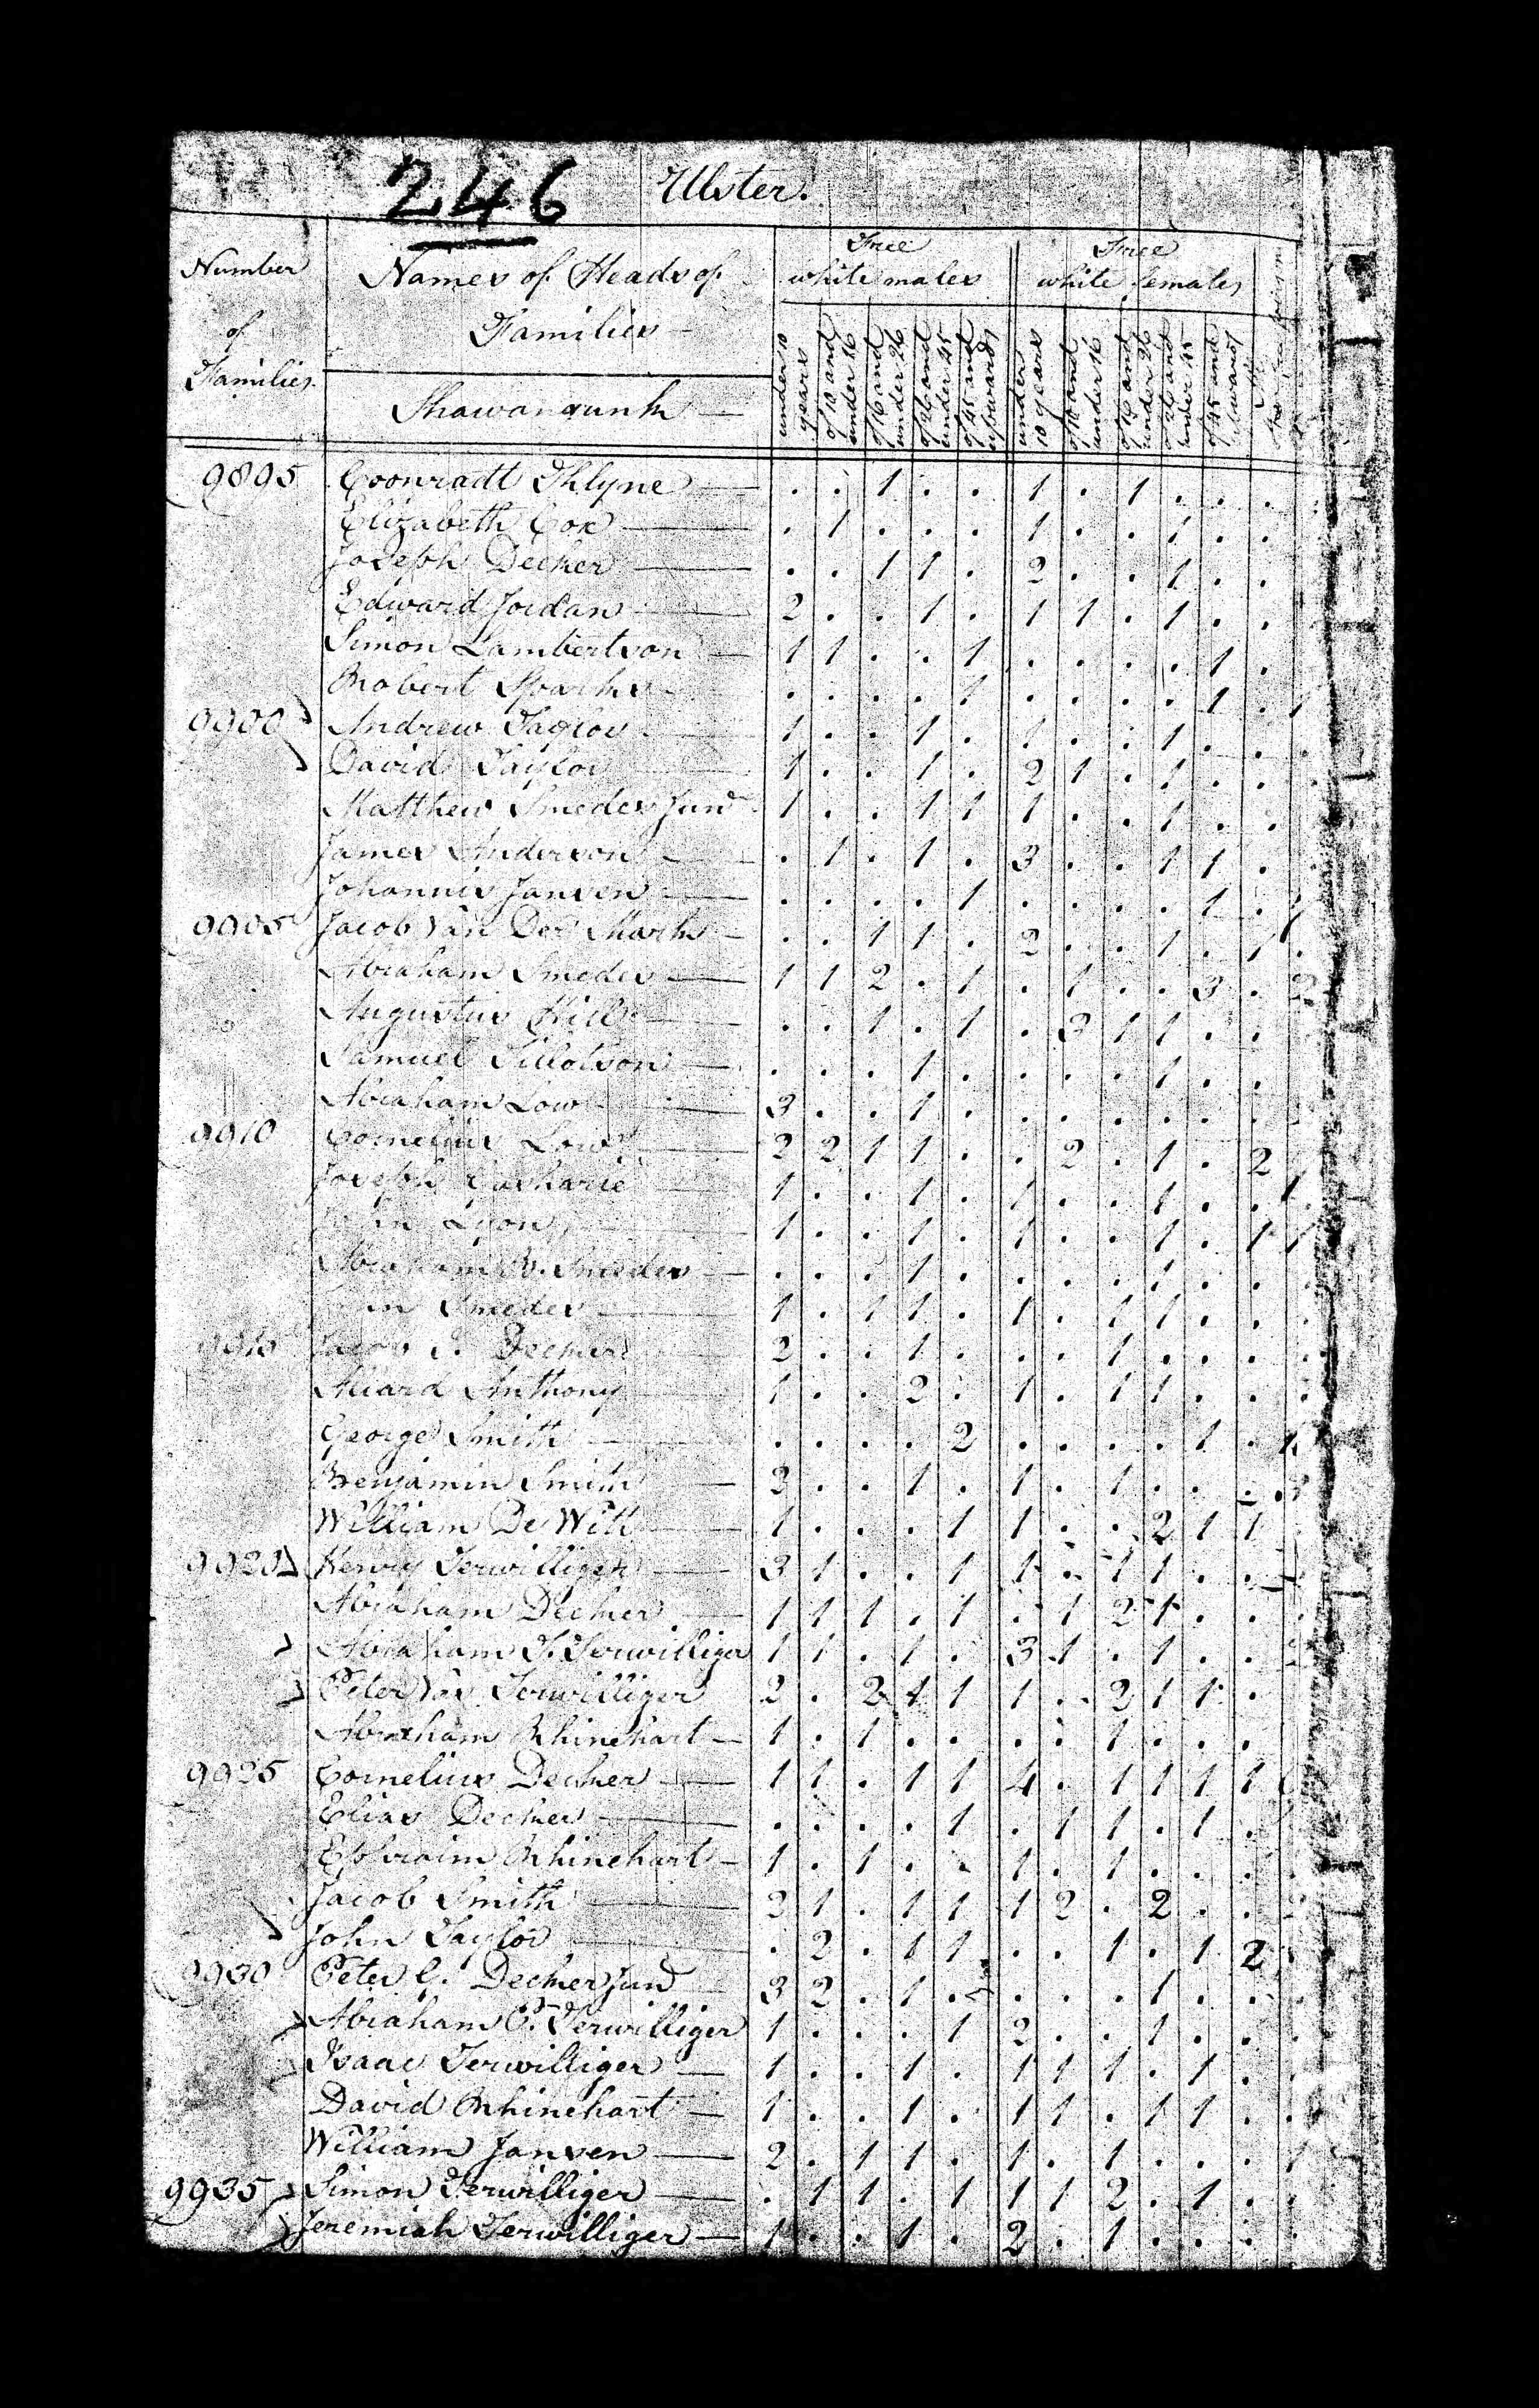 246 Ulster.
Number of Families.
Names of Heads of Families
Shawangunk
Free white males
Free white females
under 10 years
of 10 and under 16
of 16 and under 26
of 26 and under 45
of 45 and upwards
under 10 years
of 10 and under 16
of 16 and under 26
of 26 and under 45
of 45 and upwards
9895 Coonradt Khlyne . . 1 . . 1 . 1 . . .
Elizabeth Cox . 1 . . . 1 . . 1 . .
Joseph Decker . . 1 1 . 2 . . 1 . .
Edward Jordan 2 . . 1 . 1 1 . 1 . .
Simon Lambertson 1 1 . . 1 . . . . 1 .
Robert Sparks . . . . 1 . . . . 1 . 1
9900 Andrew Taylor 1 . . 1 . 1 . . 1 . .
David Taylor 1 . . 1 . 2 1 . 1 . .
Matthew Smedes Junr 1 . . 1 1 1 . . 1 . .
James Anderson . 1 . 1 . 3 . . 1 1 .
Johannis Jansen . . . . 1 . . . . 1 .
9905 Jacob Van Der Mark . . 1 1 . 2 . . 1 . 1
Abraham Smedes 1 1 2 . 1 . 1 . . 3 .
Augustus Hill . . 1 . 1 . 3 1 1 . .
Samuel Tillotson . . . 1 . . . . 1 . .
Abraham Low 3 . . 1 . . . . . . .
9910 Cornelius Low 2 2 1 1 . . 2 . 1 . 2
Joseph 1 . . 1 . 1 . . 1 . . 1
John Lyon 1 . . 1 . 1 . . 1 . 1 1
Abraham B. Smedes . . . 1 . . . . 1 . .
John Smedes 1 . 1 1 . 1 . 1 1 . .
9915 Jacob J. Decker 2 . . 1 . . . 1 . . .
Allard Anthony 1 . . 2 . 1 . 1 1 . .
George Smith . . . . 2 . . . . 1 .
Benjamin Smith 2 . . 1 . 1 . 1 . . .
William De Witt 1 . . . 1 1 . . 2 1 1
9920 Henry Terwilliger 3 1 . . 1 1 . 1 1 . .
Abraham Decker 1 1 1 . 1 . 1 2 1 . .
Abraham T. Terwilliger 1 1 . 1 . 3 1 . 1 . .
Peter Terwilliger 2 . 2 1 1 1 . 2 1 1 .
Abraham Rhinehart 1 . 1 . . . . 1 . . .
9925 Cornelius Decker 1 1 . 1 1 4 . 1 1 1 1
Elias Decker . . . . 1 . 1 1 . 1 .
Ephraim Rhinehart 1 . 1 . . 1 . 1 . . .
Jacob Smith 2 1 . 1 1 1 2 . 2 . .
John Taylor . 2 . 1 1 . . 1 . 1 2
9930 Peter C. Decker Junr 3 2 . 1 . . . . 1 . .
Abraham P. Terwilliger 1 . . . 1 2 . . 1 . .
Isaac Terwilliger 1 . . 1 . 1 1 1 . 1 .
David Rhinehart 1 . . 1 . 1 1 . 1 1 .
William Jansen 2 . 1 1 . 1 . 1 . . . 1
9935 Simon Terwilliger . 1 1 . 1 1 1 2 . 1 .
Jeremiah Terwilliger 1 . . 1 . 2 . 1 . . .